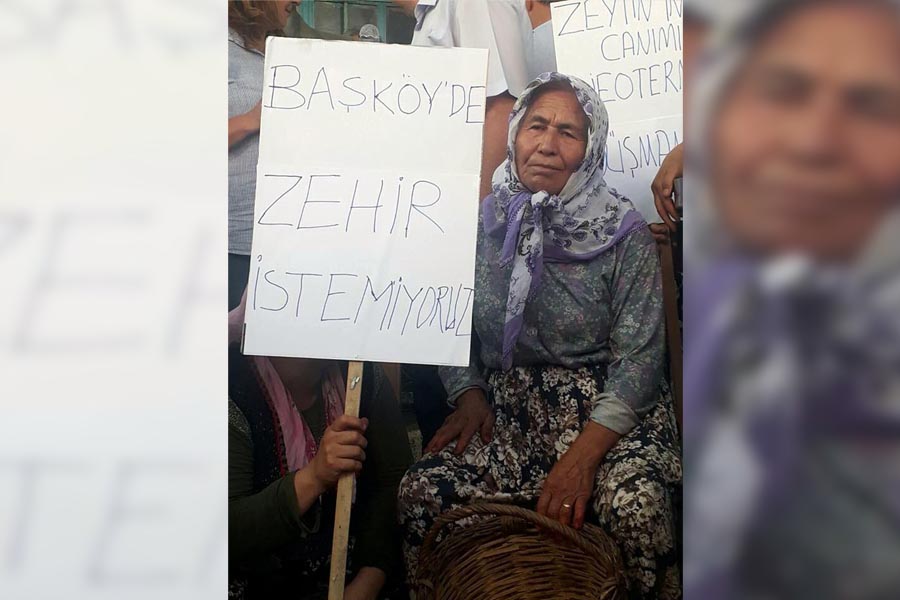 BAŞKÖY'DE
ZEHİR
İSTEMİYORUZ
ZEYTİN İN
CANIMI
JEOTERM
ÜŞMA